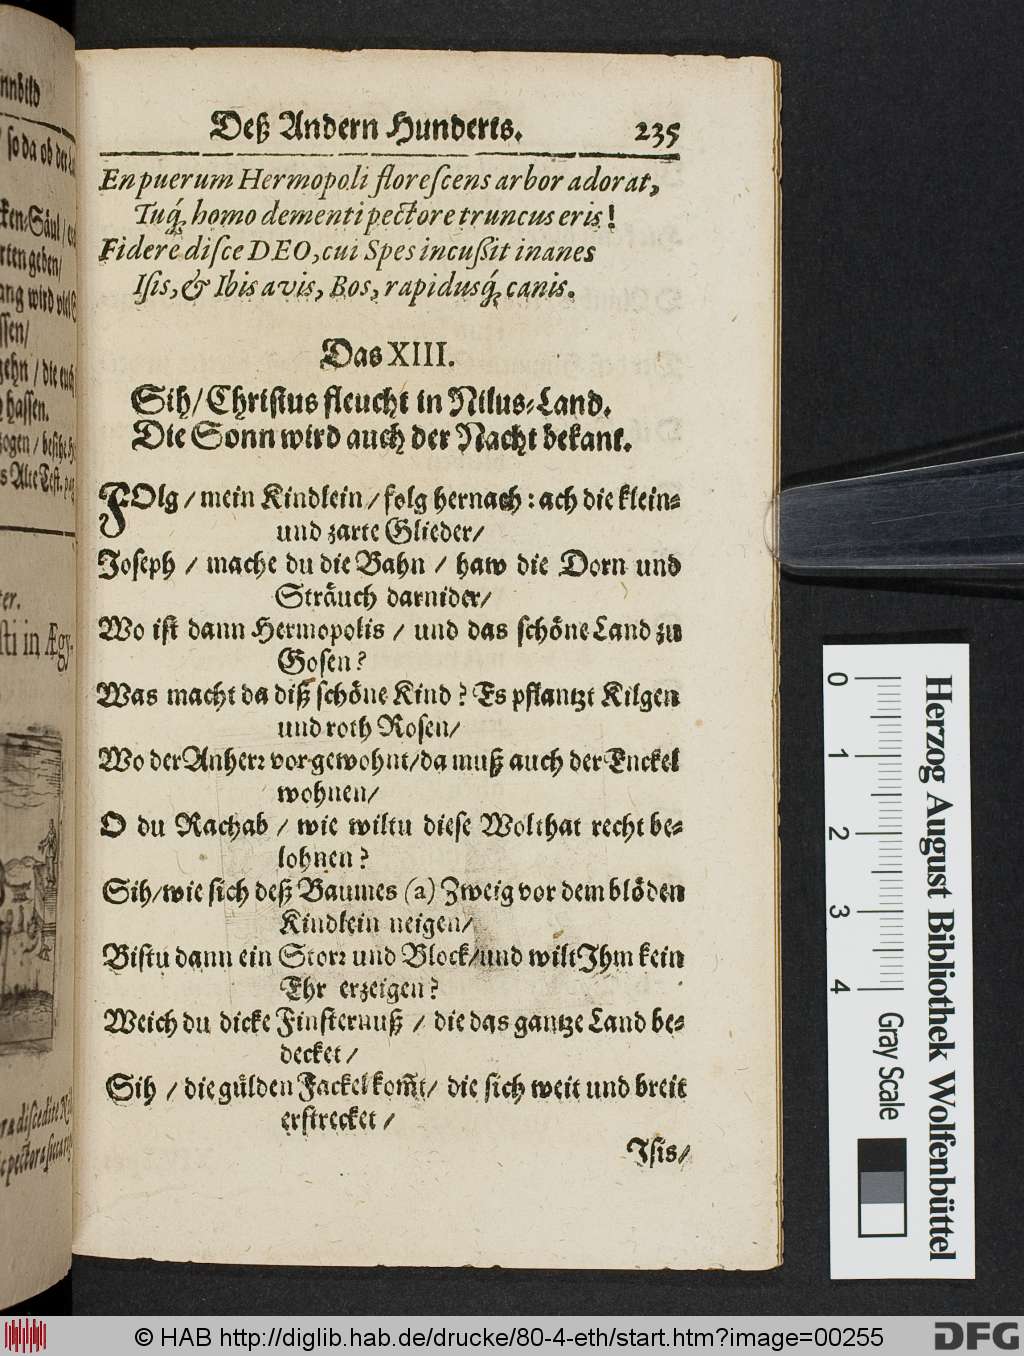 Deß Andern Hunderts. 235
En puerum Hermopoli floreſcens arbor adorat,
Tuq́; homo dementi pectore truncus eris!
Fidere diſce DEO, cui Spes incuſsit inanes
Iſis, & Ibis avis, Bos, rapidusq́; canis.
Das XIII.
Sih/ Chriſtus fleucht in Nilus-Land.
Die Sonn wird auch der Nacht bekant.
FOlg / mein Kindlein / folg hernach : ach die klein-
und zarte Glieder/
Joſeph / mache du die Bahn / haw die Dorn und
Sträuch darnider/
Wo iſt dann Hermopolis / und das ſchöne Land zu
Goſen?
Was macht da diß ſchöne Kind? Es pflantzt Kilgen
und roth Roſen/
Wo der Anherꝛ vor gewohnt/da muß auch der Enckel
wohnen/
O du Rachab / wie wiltu dieſe Wolthat recht be-
lohnen?
Sih/wie ſich deß Baumes (a) Zweig vor dem blöden
Kindlein neigen/
Biſtu dann ein Storꝛ und Block/und wilt Ihm kein
Ehr erzeigen?
Weich du dicke Finſternuß / die das gantze Land be-
decket /
Sih / die gülden Fackel kom̃t/ die ſich weit und breit
erſtrecket /
Iſis/
nnbild
ſo da ob der
ken-Säul
rten geben/
ang wird viel
ſſen/
gehn / die euch
haſſen.
zogen / beſihe
s Alte Teſt.
ter.
ſti in Ægy-
diſcedite
pectore
0 1 2 3 4
Gray Scale
Herzog August Bibliothek Wolfenbüttel
© HAB http://diglib.hab.de/drucke/80-4-eth/start.htm?image=00255
DFG